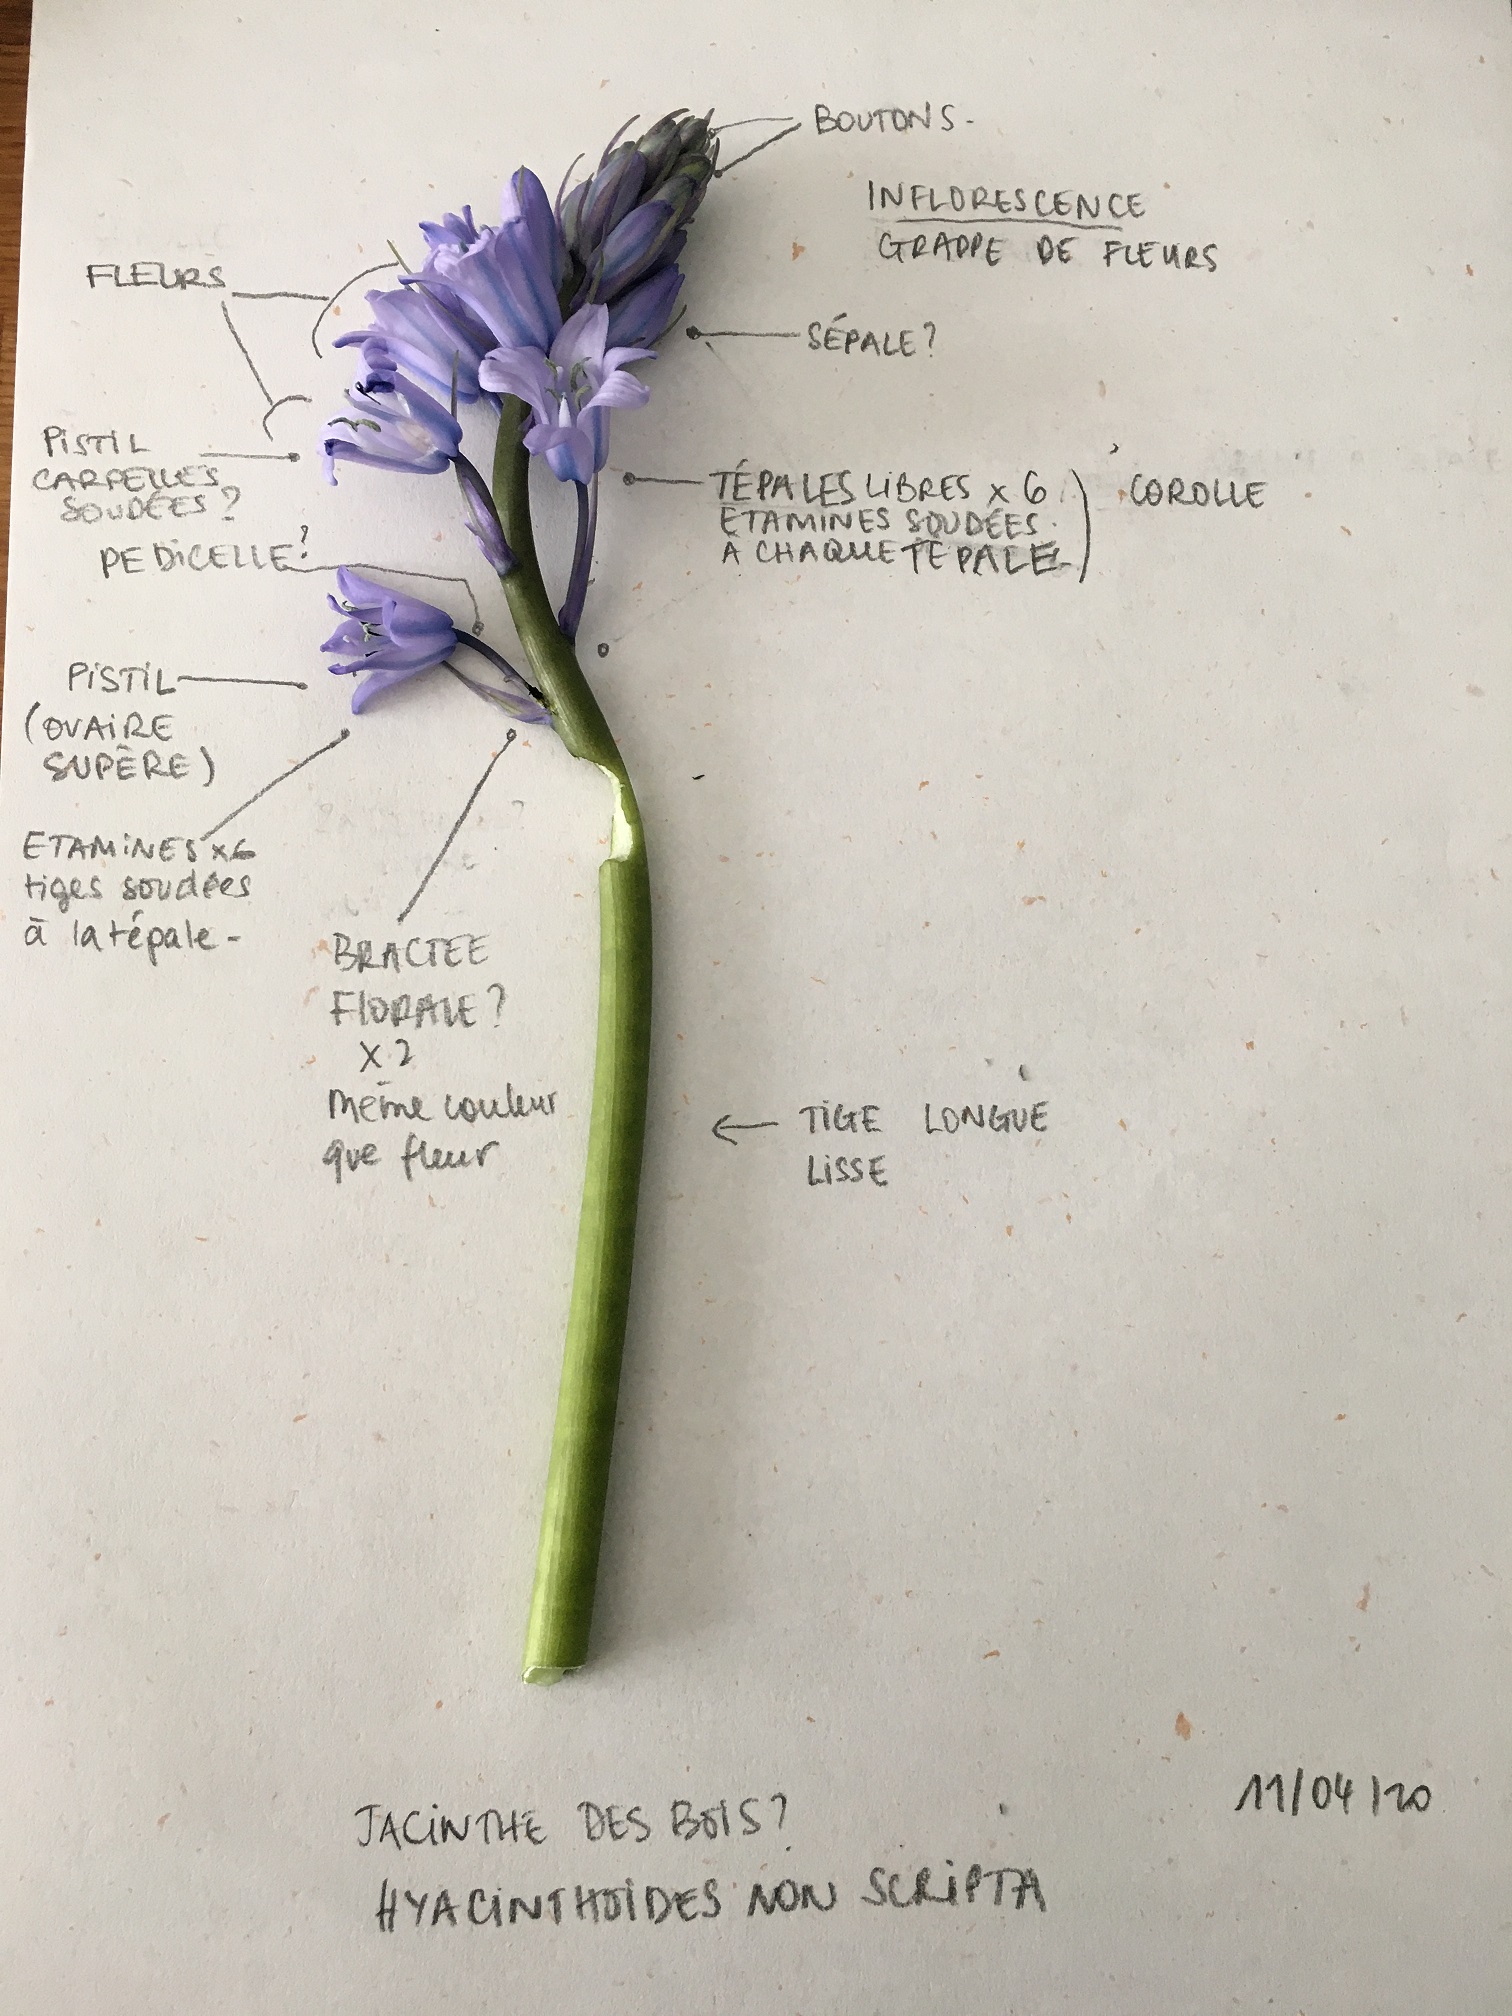 BOUTONS-
INFLORESCENCE
GRAPPE DE FLEURS
FLEURS
SÉPALE?
PISTIL
CARPELLES
SOUDÉES?
TÉPALES LIBRES x 6
ETAMINES SOUDÉES
À CHAQUE TÉPALE
COROLLE
PEDICELLE?
PISTIL
(OVAIRE
SUPÈRE)
ETAMINES x6
tiges soudées
à la tépale-
BRACTEE
FLORALE?
X 2
même couleur
que fleur
← TIGE LONGUE
LISSE
JACINTHE DES BOIS?
HYACINTHOIDES NON SCRIPTA
11/04/20